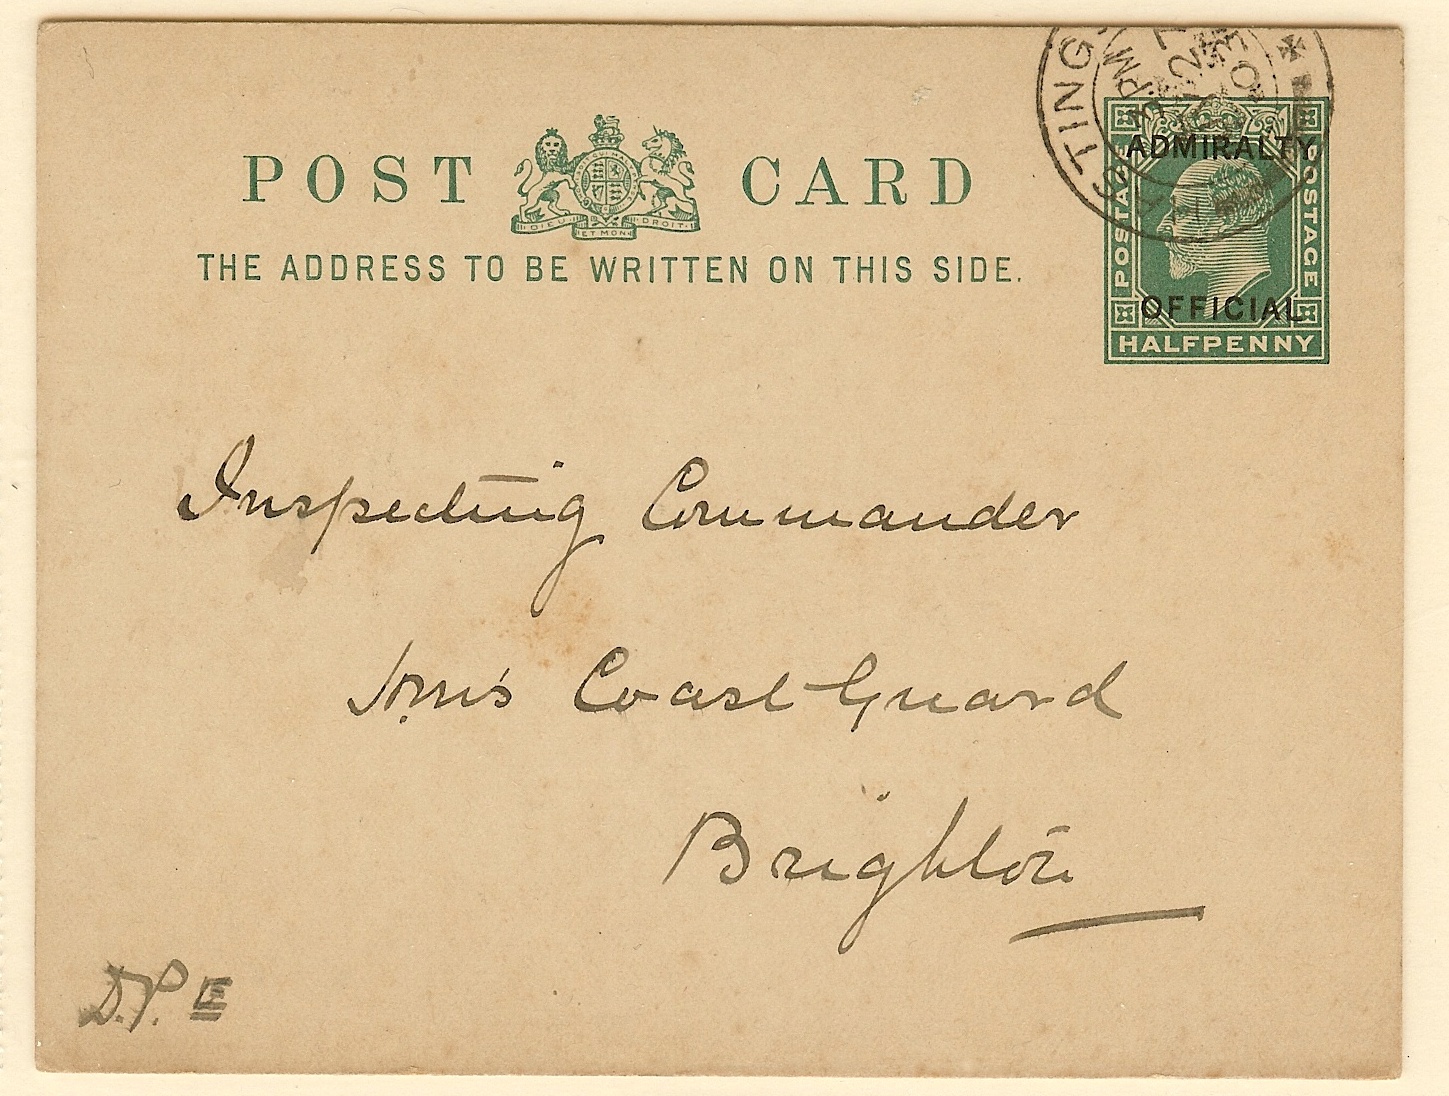 POST CARD
THE ADDRESS TO BE WRITTEN ON THIS SIDE.
DIEU ET MON DROIT
TINGS
PM
ADMIRALTY
POSTAGE POSTAGE
OFFICIAL
HALFPENNY
Inspecting Commander
Coast Guard
Brighton
D.P. E